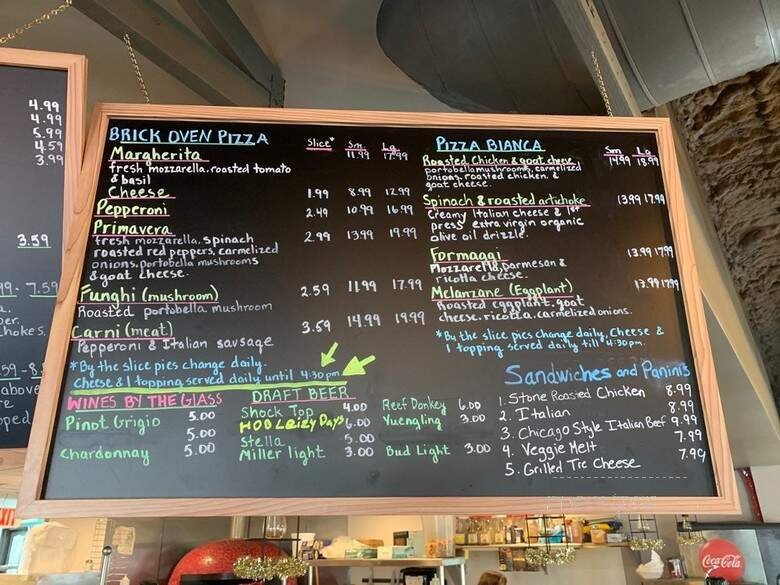 4.99
4.99
5.99
4.59
3.99
3.59
7.59
BRICK OVEN PIZZA Slice* Sm. Lg.
Margherita 11.99 17.99
fresh mozzarella, roasted tomato
& basil
Cheese 1.99 8.99 12.99
Pepperoni 2.49 10.99 16.99
Primavera 2.99 13.99 19.99
fresh mozzarella, spinach
roasted red peppers, carmelized
onions, portobella mushrooms
& goat cheese.
Funghi (mushroom) 2.59 11.99 17.99
Roasted portobella mushroom
Carni (meat) 3.59 14.99 19.99
Pepperoni & Italian sausage
*By the slice pies change daily.
Cheese & 1 topping served daily until 4:30pm
WINES BY THE GLASS
Pinot Grigio 5.00
5.00
Chardonnay 5.00
DRAFT BEER
Shock Top 4.00
HOO Lazy Days 6.00
Stella 5.00
Miller light 3.00
Reef Donkey 6.00
Yuengling 3.00
Bud Light 3.00
PIZZA BIANCA Sm Lg
Roasted Chicken & goat cheese 14.99 18.99
portobella mushrooms, carmelized
onions, roasted chicken, &
goat cheese.
Spinach & roasted artichoke 13.99 17.99
Creamy Italian cheese & 1st
press extra virgin organic
olive oil drizzle.
Formaggi 13.99 17.99
Mozzarella, parmesan &
ricotta cheese.
Melanzane (Eggplant) 13.99 17.99
Roasted eggplant, goat
cheese, ricotta, carmelized onions.
*By the slice pies change daily, Cheese &
1 topping served daily till 4:30pm.
Sandwiches and Paninis
1. Stone Roasted Chicken 8.99
2. Italian 8.99
3. Chicago Style Italian Beef 9.99
4. Veggie Melt 7.99
5. Grilled Tre Cheese 7.99
Coca-Cola